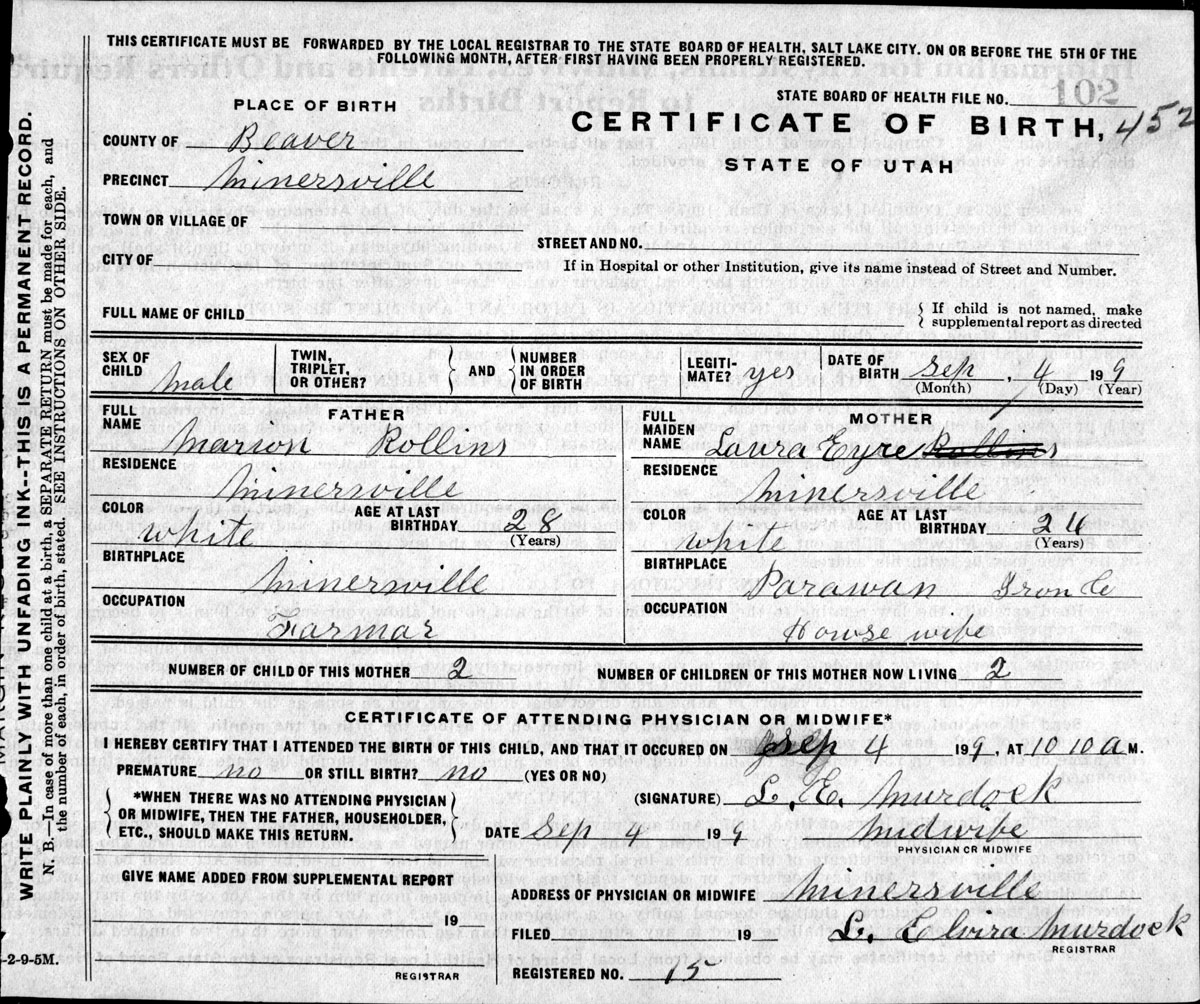 THIS CERTIFICATE MUST BE FORWARDED BY THE LOCAL REGISTRAR TO THE STATE BOARD OF HEALTH, SALT LAKE CITY. ON OR BEFORE THE 5TH OF THE
FOLLOWING MONTH, AFTER FIRST HAVING BEEN PROPERLY REGISTERED.
PLACE OF BIRTH
STATE BOARD OF HEALTH FILE NO. 102
CERTIFICATE OF BIRTH, 452
STATE OF UTAH
COUNTY OF Beaver
PRECINCT Minersville
TOWN OR VILLAGE OF
STREET AND NO.
CITY OF
If in Hospital or other Institution, give its name instead of Street and Number.
FULL NAME OF CHILD
{ If child is not named, make
supplemental report as directed
SEX OF CHILD male
TWIN, TRIPLET, OR OTHER?
} AND {
NUMBER IN ORDER OF BIRTH
LEGITI-MATE? yes
DATE OF BIRTH Sep, 4 199
(Month) (Day) (Year)
FATHER
FULL NAME Marion Rollins
RESIDENCE Minersville
COLOR white AGE AT LAST BIRTHDAY 28
(Years)
BIRTHPLACE Minersville
OCCUPATION Farmar
MOTHER
FULL MAIDEN NAME Laura Eyre Rollins
RESIDENCE Minersville
COLOR white AGE AT LAST BIRTHDAY 24
(Years)
BIRTHPLACE Parawan Iron Co
OCCUPATION Howse wife
NUMBER OF CHILD OF THIS MOTHER 2 NUMBER OF CHILDREN OF THIS MOTHER NOW LIVING 2
CERTIFICATE OF ATTENDING PHYSICIAN OR MIDWIFE*
I HEREBY CERTIFY THAT I ATTENDED THE BIRTH OF THIS CHILD, AND THAT IT OCCURED ON Sep 4 199, AT 10 10 a M.
PREMATURE no OR STILL BIRTH? no (YES OR NO)
*WHEN THERE WAS NO ATTENDING PHYSICIAN
OR MIDWIFE, THEN THE FATHER, HOUSEHOLDER,
ETC., SHOULD MAKE THIS RETURN.
(SIGNATURE) L. E. Murdock
DATE Sep 4 199 Midwife
PHYSICIAN OR MIDWIFE
GIVE NAME ADDED FROM SUPPLEMENTAL REPORT
19
REGISTRAR
ADDRESS OF PHYSICIAN OR MIDWIFE Minersville
FILED 19 L. Elvira Murdock
REGISTRAR
REGISTERED NO. 15
WRITE PLAINLY WITH UNFADING INK--THIS IS A PERMANENT RECORD.
N. B.—In case of more than one child at a birth, a SEPARATE RETURN must be made for each, and
the number of each, in order of birth, stated. SEE INSTRUCTIONS ON OTHER SIDE.
-2-9-5M.